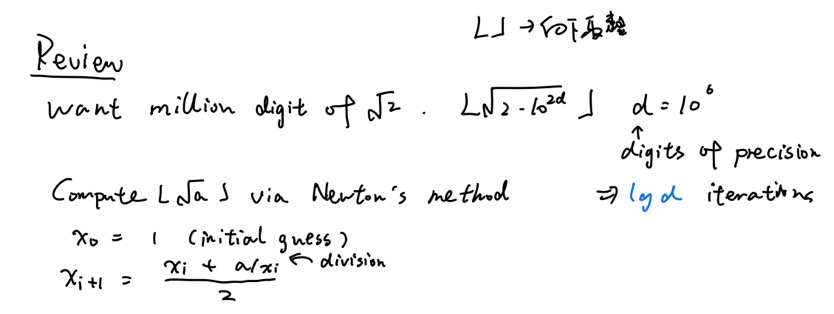 ⌊⌋ → 向下取整
Review
want million digit of √2 . ⌊√2·10^2d⌋ d = 10^6
↑
digits of precision
Compute ⌊√a⌋ via Newton's method ⇒ lg d iterations
x₀ = 1 (initial guess)
xᵢ₊₁ = (xᵢ + a/xᵢ)/2 ← division